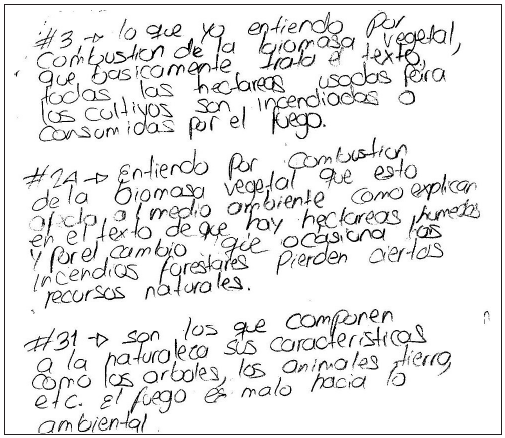 #3 → lo que yo entiendo por
combustion de la biomasa vegetal,
que basicamente trata el texto,
todas las hectareas usadas para
los cultivos son incendiados o
consumidas por el fuego.
#2A → Entiendo por combustion
de la biomasa vegetal que esto
afecta al medio ambiente como explican
en el texto de que hay hectareas humedas
y por el cambio que ocasiona los
incendios forestales pierden ciertos
recursos naturales.
#31 → son los que componen
a la naturaleza sus caracteristicas
como los arboles, los animales, tierra,
etc. El fuego es malo hacia lo
ambiental.